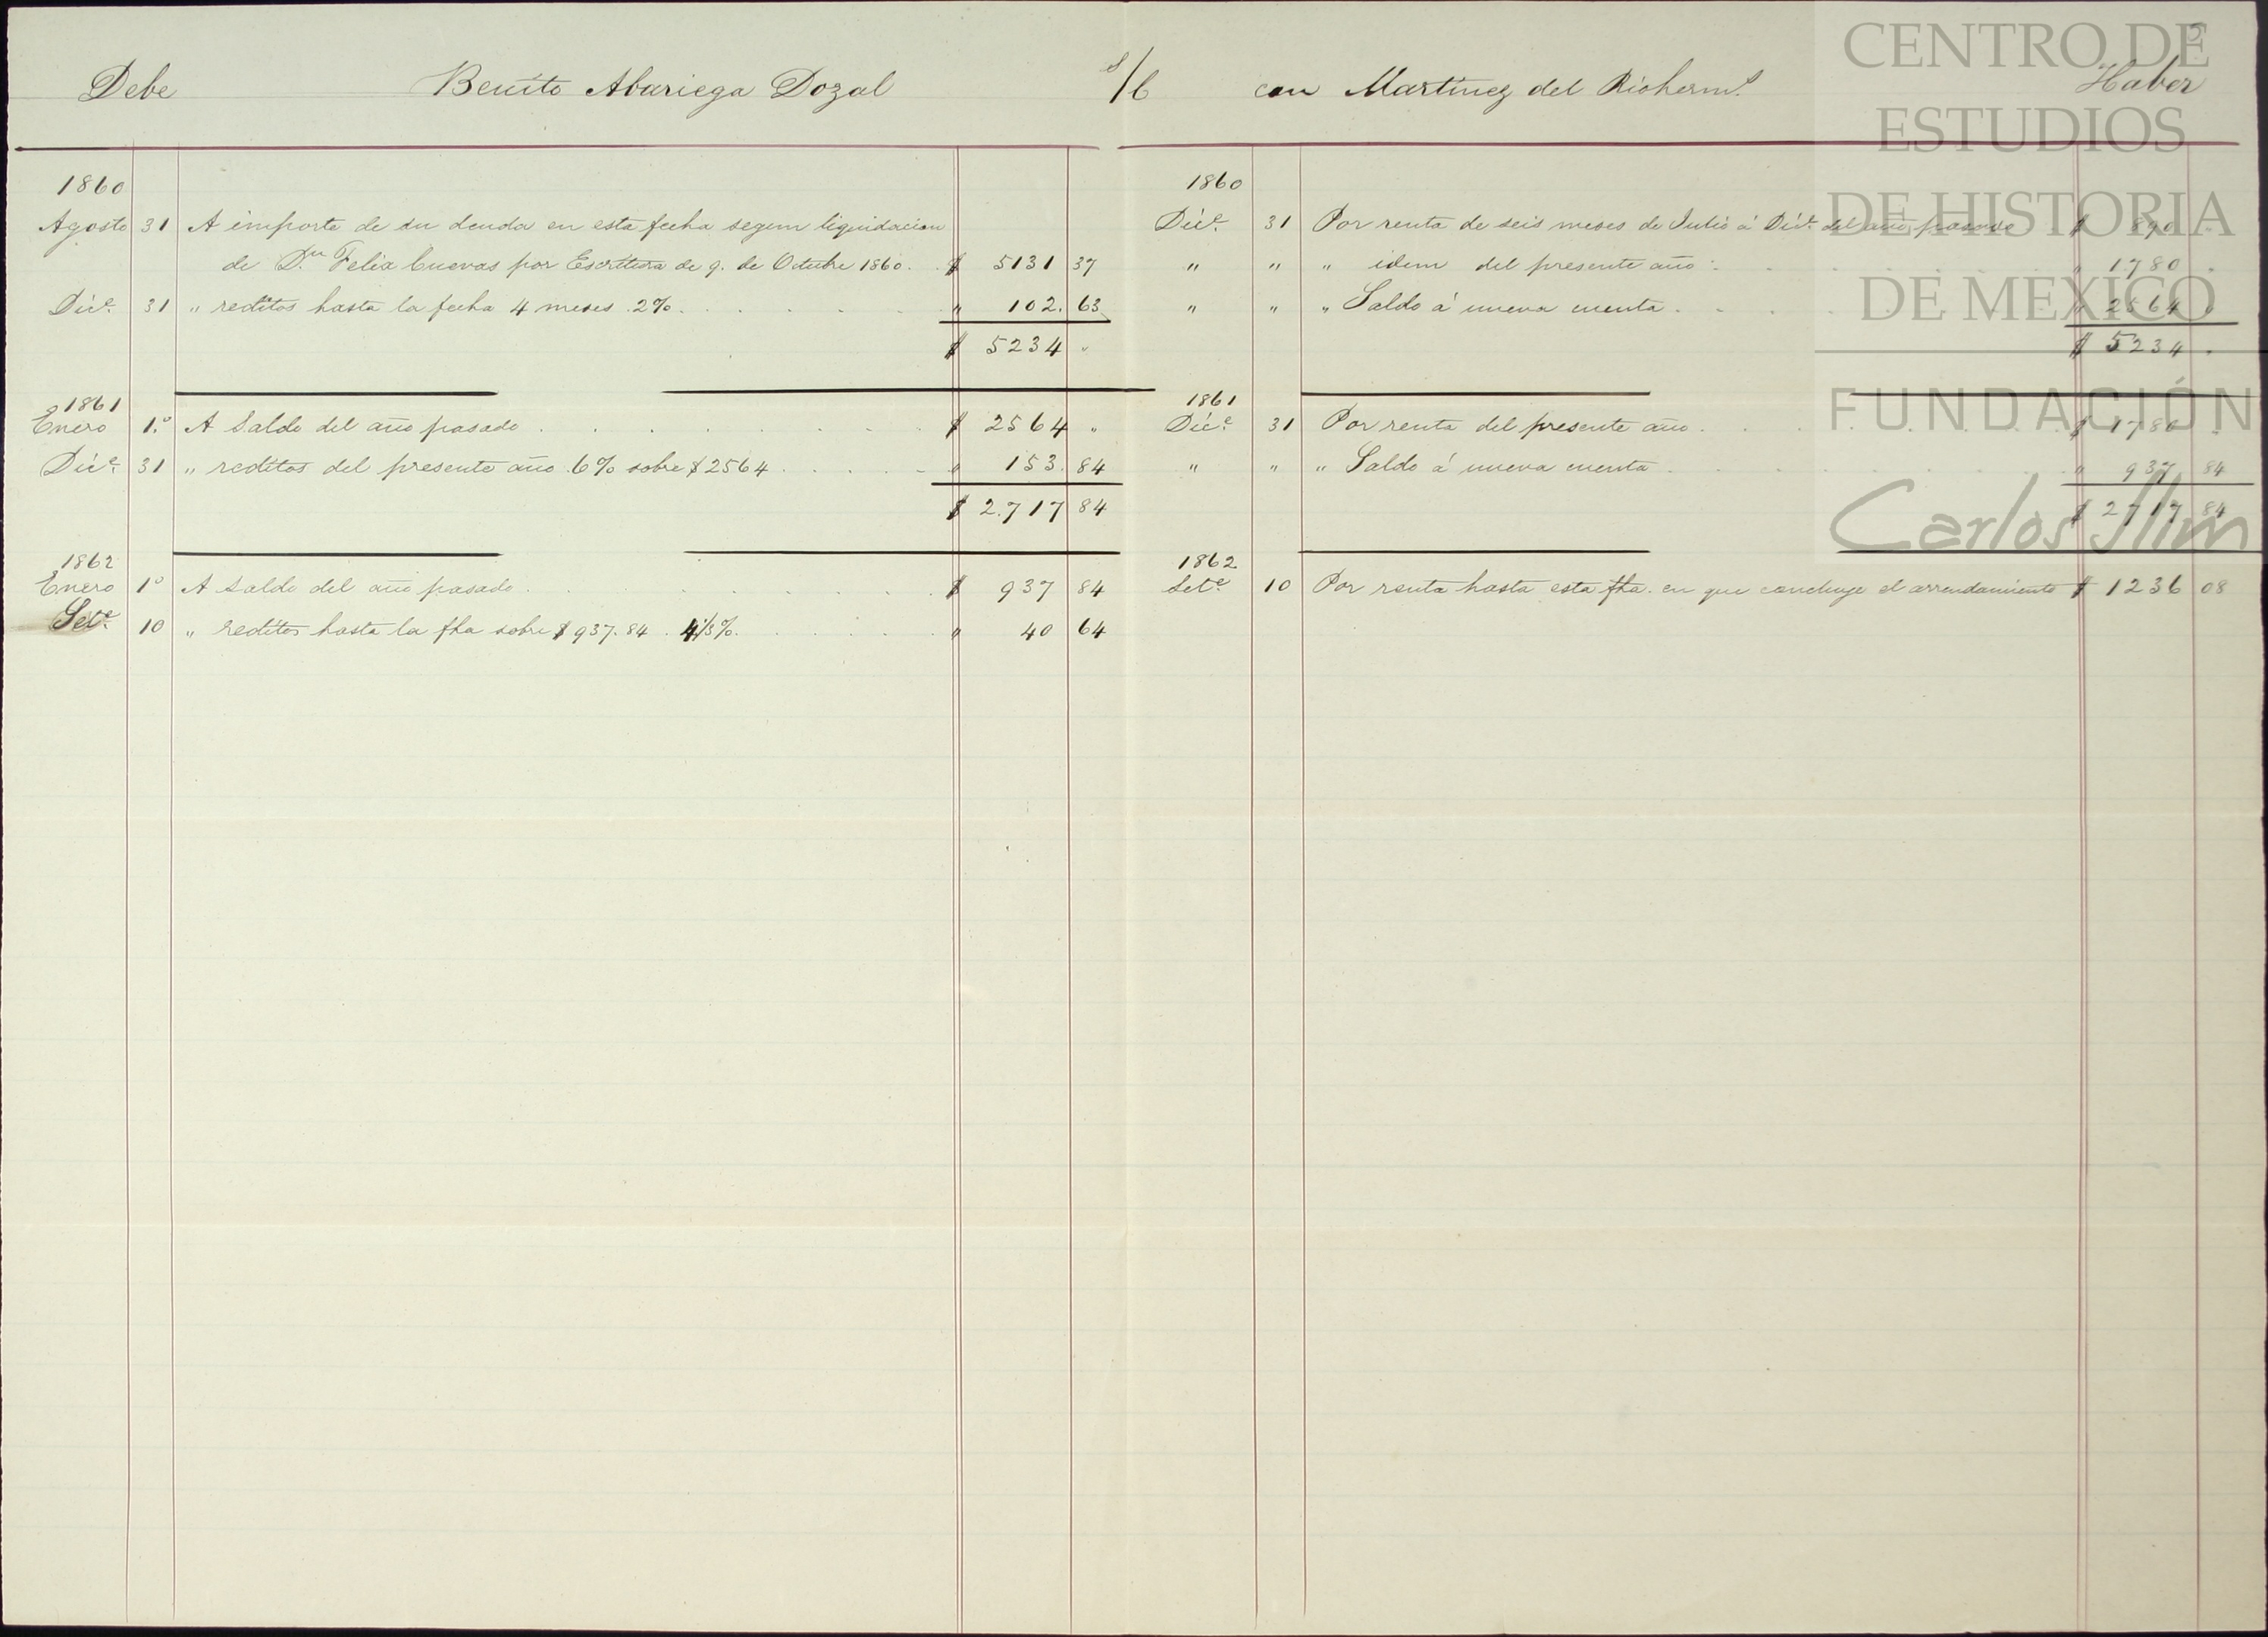 Debe Benito Abariega Dozal s/c con Martinez del Rio herm.s Haber
1860
Agosto 31 A importe de su deuda en esta fecha segun liquidacion
de D.n Felix Cuevas por Escritura de 9. de Octubre 1860. $ 5131 37
Dic.e 31 " reditos hasta la fecha 4 meses 2% " 102. 63
$ 5234 "
1861
Enero 1.o A Saldo del año pasado $ 2564 "
Dic.e 31 " reditos del presente año 6% sobre $2564 " 153. 84
$ 2.717 84
1862
Enero 1o A Saldo del año pasado $ 937 84
Set.e 10 " reditos hasta la fha sobre $937.84. 4 1/3%. " 40 64
1860
Dic.e 31 Por renta de seis meses de Julio á Dic.e del año pasado $ 890 "
" " " idem del presente año " 1780 "
" " " Saldo á nueva cuenta " 2564 "
$ 5234 "
1861
Dic.e 31 Por renta del presente año $ 1780 "
" " " Saldo á nueva cuenta " 937 84
$ 2717 84
1862
Set.e 10 Por renta hasta esta fha. en que concluye el arrendamiento $ 1236 08
CENTRO DE
ESTUDIOS
DE HISTORIA
DE MEXICO
FUNDACIÓN
Carlos Slim